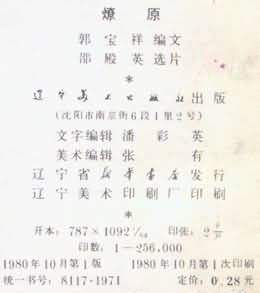 燎原
郭宝祥编文
邵殿英选片
*
辽宁美术出版社出版
(沈阳市南京街6段1里2号)
文字编辑 潘彩英
美术编辑 张有
辽宁省新华书店发行
辽宁美术印刷厂印刷
*
开本:787×1092 1/64 印张:2
印数:1—256,000
1980年10月第1版 1980年10月第1次印刷
统一书号:8117-1971 定价:0.28元